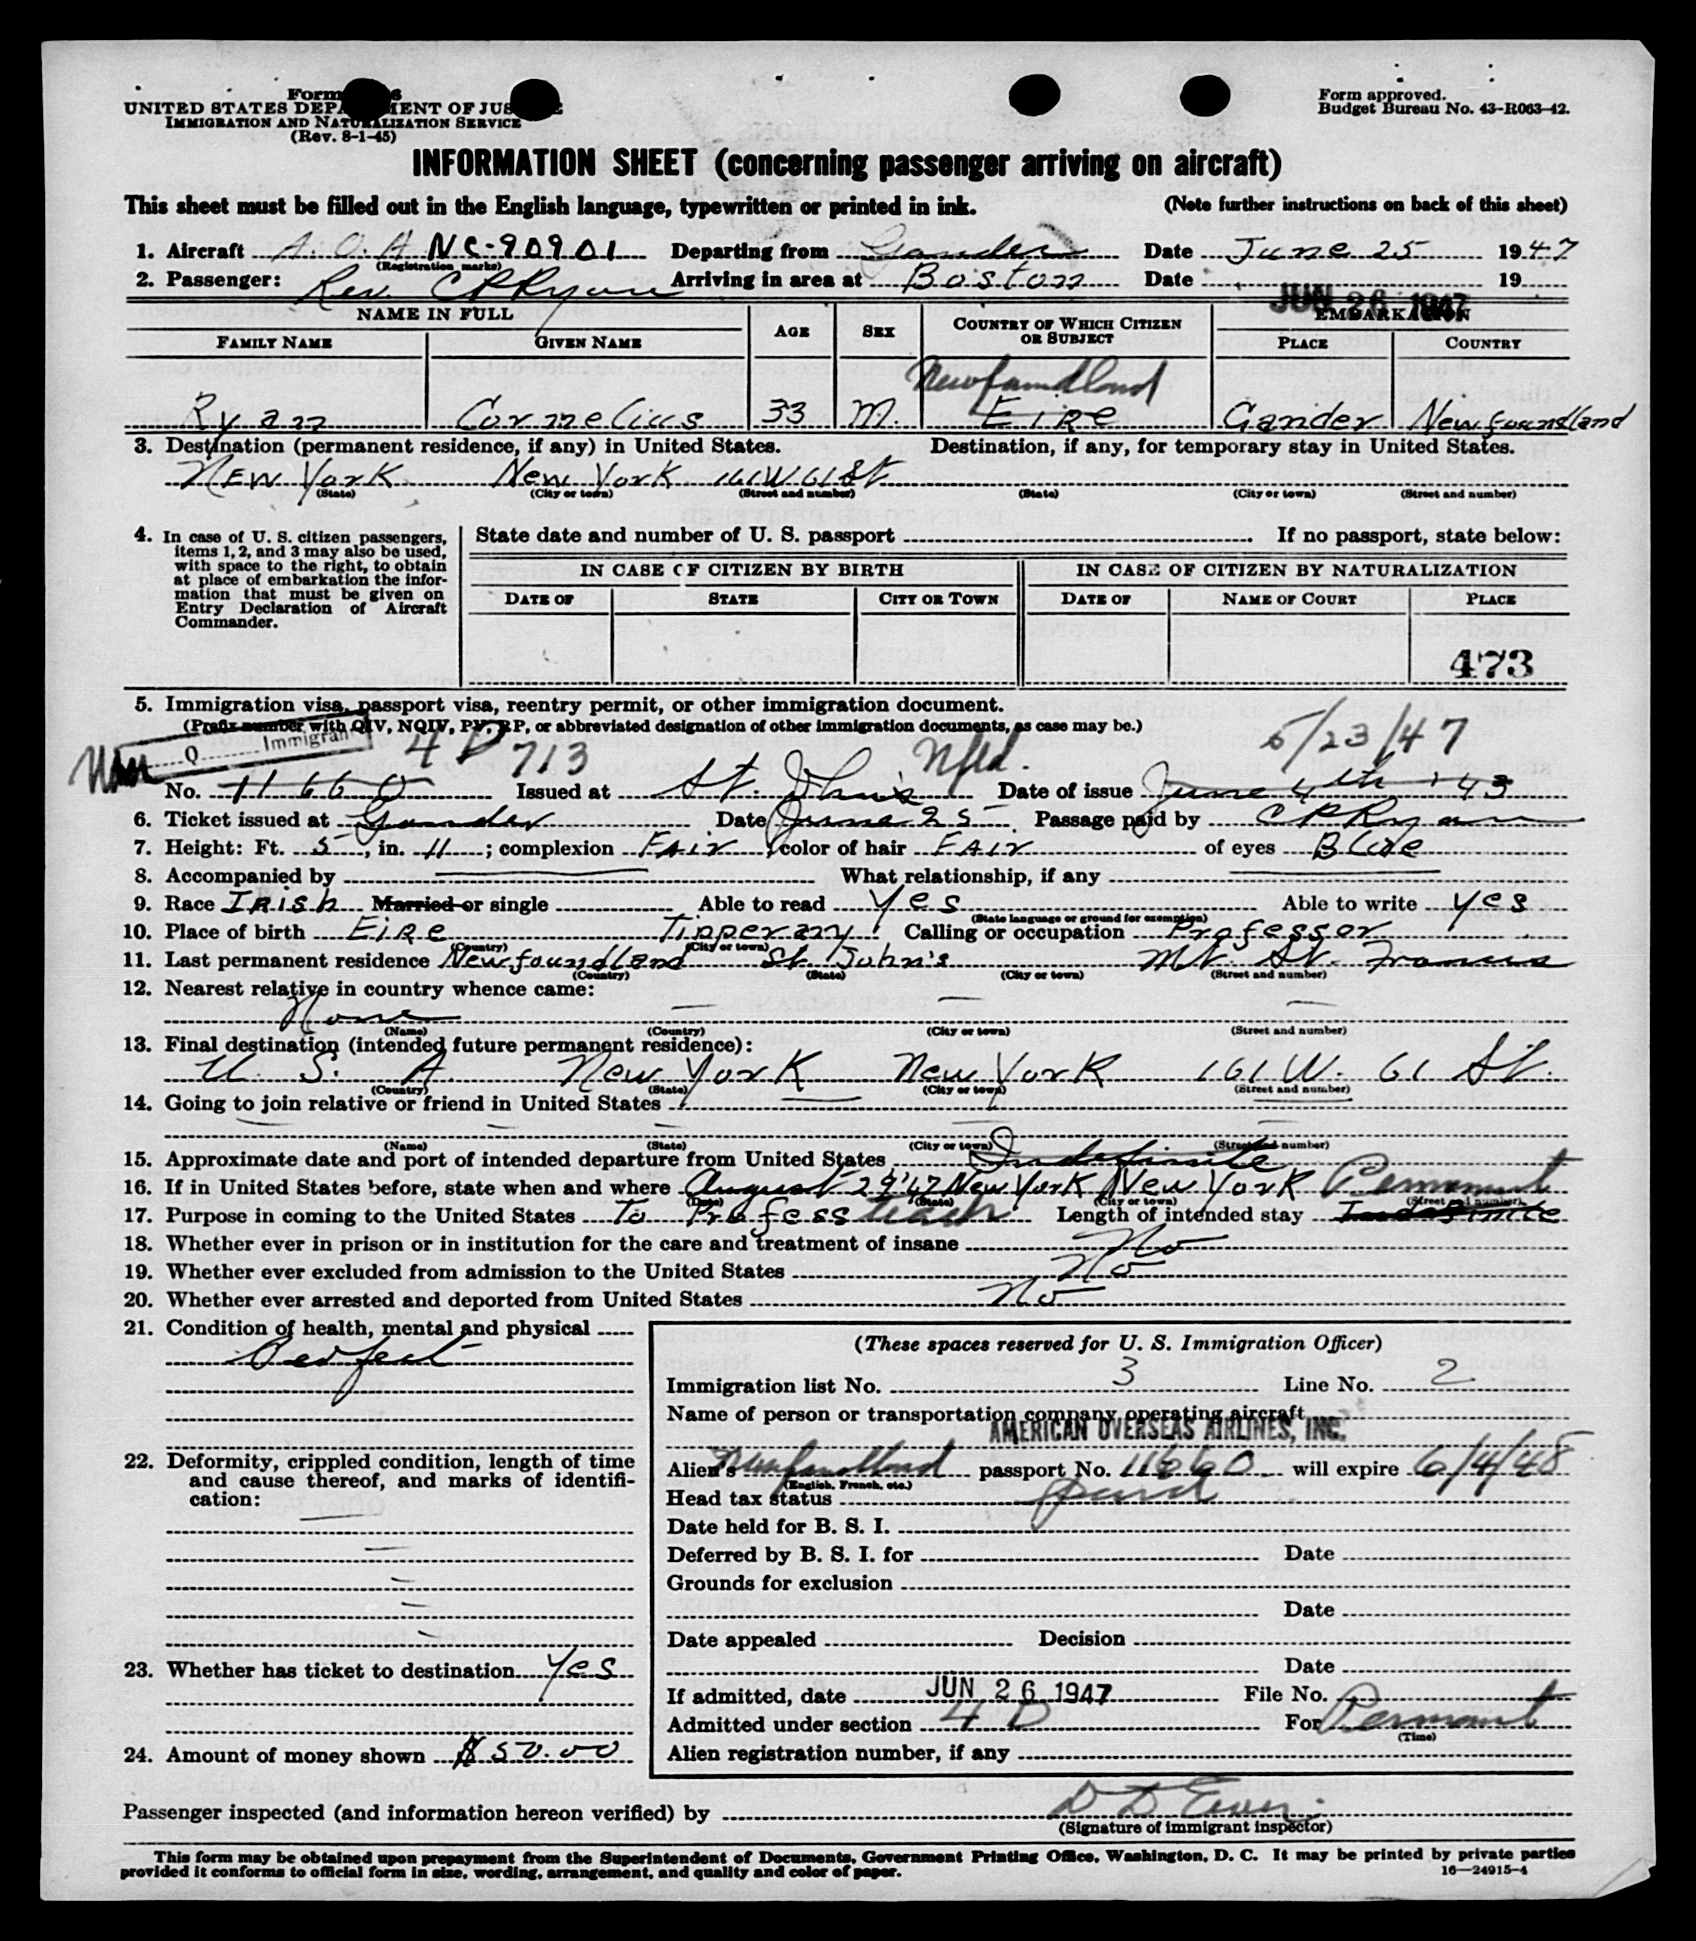 Form
UNITED STATES DEPARTMENT OF JUSTICE
IMMIGRATION AND NATURALIZATION SERVICE
(Rev. 8-1-45)
Form approved.
Budget Bureau No. 43-R063-42.
INFORMATION SHEET (concerning passenger arriving on aircraft)
This sheet must be filled out in the English language, typewritten or printed in ink. (Note further instructions on back of this sheet)
1. Aircraft A. O. A NC-90901 Departing from Gander Date June 25 1947
(Registration marks)
2. Passenger: Rev. C P Ryan Arriving in area at Boston Date JUN 26 1947 19
NAME IN FULL AGE SEX COUNTRY OF WHICH CITIZEN OR SUBJECT EMBARKATION
FAMILY NAME GIVEN NAME PLACE COUNTRY
Newfoundland
Ryan Cornelius 33 M. Eire Gander Newfoundland
3. Destination (permanent residence, if any) in United States. Destination, if any, for temporary stay in United States.
New York New York 161 W 61 St
(State) (City or town) (Street and number) (State) (City or town) (Street and number)
4. In case of U. S. citizen passengers, items 1, 2, and 3 may also be used, with space to the right, to obtain at place of embarkation the information that must be given on Entry Declaration of Aircraft Commander.
State date and number of U. S. passport If no passport, state below:
IN CASE OF CITIZEN BY BIRTH IN CASE OF CITIZEN BY NATURALIZATION
DATE OF STATE CITY OR TOWN DATE OF NAME OF COURT PLACE
473
5. Immigration visa, passport visa, reentry permit, or other immigration document.
(Prefix number with QIV, NQIV, PV, RP, or abbreviated designation of other immigration documents, as case may be.)
Non Q Immigrant 4 D 713 Nfld. 5/23/47
No. 11660 Issued at St. John's Date of issue June 4th '43
6. Ticket issued at Gander Date June 25 Passage paid by C P Ryan
7. Height: Ft. 5, in. 11; complexion FAIR, color of hair FAIR of eyes Blue
8. Accompanied by What relationship, if any
9. Race Irish Married or single Able to read Yes Able to write Yes
(State language or ground for exemption)
10. Place of birth Eire Tipperary Calling or occupation Professor
(Country) (City or town)
11. Last permanent residence Newfoundland St. John's Mt. St. Francis
(Country) (State) (City or town) (Street and number)
12. Nearest relative in country whence came:
None
(Name) (Country) (City or town) (Street and number)
13. Final destination (intended future permanent residence):
U. S. A New York New York 161 W. 61 St.
(Country) (State) (City or town) (Street and number)
14. Going to join relative or friend in United States
(Name) (State) (City or town) (Street and number)
15. Approximate date and port of intended departure from United States Indefinite
16. If in United States before, state when and where August 29 '47 New York New York Permanent
(Date) (State) (City or town) (Street and number)
17. Purpose in coming to the United States To Profess teach Length of intended stay Indefinite
18. Whether ever in prison or in institution for the care and treatment of insane No
19. Whether ever excluded from admission to the United States No
20. Whether ever arrested and deported from United States No
21. Condition of health, mental and physical
Perfect
22. Deformity, crippled condition, length of time and cause thereof, and marks of identification:
23. Whether has ticket to destination Yes
24. Amount of money shown $50.00
(These spaces reserved for U. S. Immigration Officer)
Immigration list No. 3 Line No. 2
Name of person or transportation company operating aircraft
AMERICAN OVERSEAS AIRLINES, INC.
Alien's Newfoundland passport No. 11660 will expire 6/4/48
(English, French, etc.)
Head tax status paid
Date held for B. S. I.
Deferred by B. S. I. for Date
Grounds for exclusion
Date
Date appealed Decision
Date
If admitted, date JUN 26 1947 File No.
Admitted under section 4 D For Permanent
(Time)
Alien registration number, if any
Passenger inspected (and information hereon verified) by D D
(Signature of immigrant inspector)
This form may be obtained upon prepayment from the Superintendent of Documents, Government Printing Office, Washington, D. C. It may be printed by private parties
provided it conforms to official form in size, wording, arrangement, and quality and color of paper. 16—24915-4